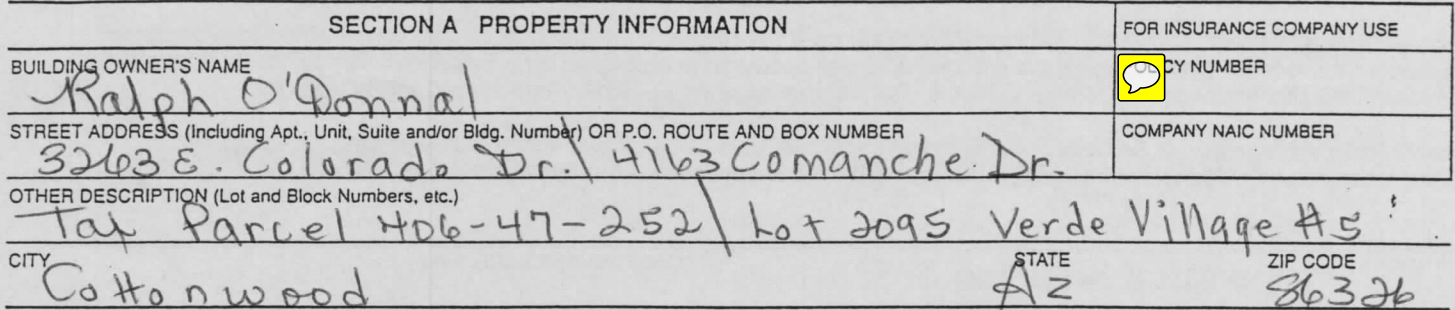 SECTION A PROPERTY INFORMATION
FOR INSURANCE COMPANY USE
BUILDING OWNER'S NAME
Ralph O'Donnal
CY NUMBER
STREET ADDRESS (Including Apt., Unit, Suite and/or Bldg. Number) OR P.O. ROUTE AND BOX NUMBER
3263 E. Colorado Dr. \ 4163 Comanche Dr.
COMPANY NAIC NUMBER
OTHER DESCRIPTION (Lot and Block Numbers, etc.)
Tax Parcel 406-47-252 \ Lot 2095 Verde Village #5
CITY
Cottonwood
STATE
AZ
ZIP CODE
86326